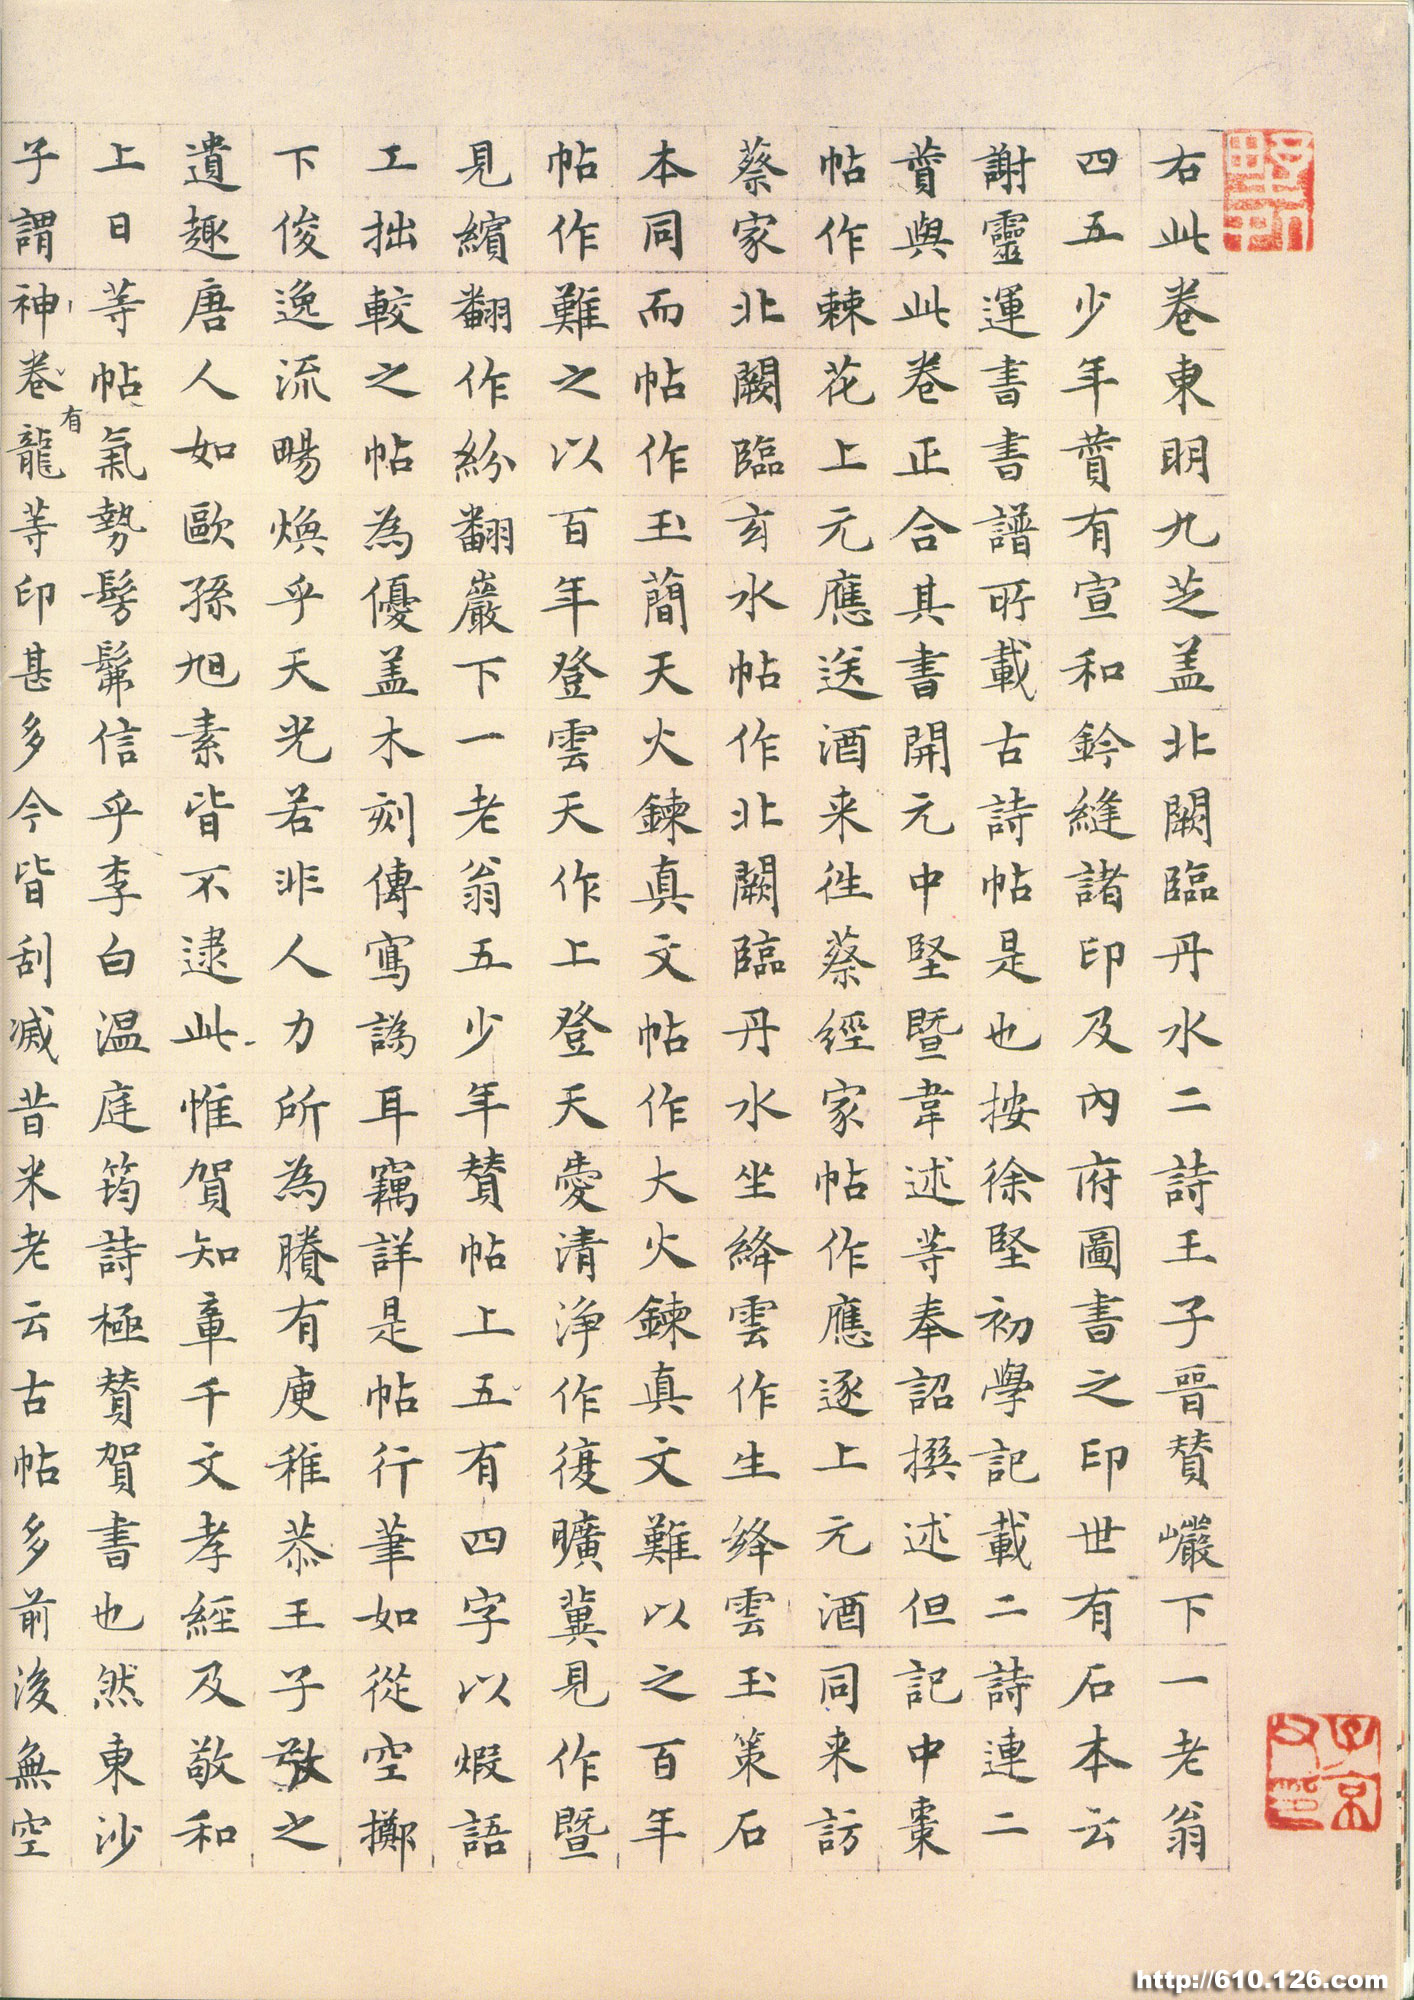 右此卷東明九芝盖北闕臨丹水二詩王子晉賛巗下一老翁
四五少年賛有宣和鈐縫諸印及內府圖書之印世有石本云
謝靈運書書譜所載古詩帖是也按徐堅初學記載二詩連二
賛與此卷正合其書開元中堅暨韋述等奉詔撰述但記中棗
帖作棘花上元應送酒来徃蔡經家帖作應逐上元酒同来訪
蔡家北闕臨玄水帖作北闕臨丹水坐絳雲作生絳雲玉策石
本同而帖作玉簡天火鍊真文帖作大火鍊真文難以之百年
帖作難之以百年登雲天作上登天愛清淨作復曠冀見作暨
見繽翻作紛翻巖下一老翁五少年賛帖上五有四字以煆語
工拙較之帖為優盖木刻傳寫譌耳竊詳是帖行筆如從空擲
下俊逸流暢煥乎天光若非人力所為賸有庾稚恭王子敬之
遺趣唐人如歐孫旭素皆不逮此惟賀知章千文孝經及敬和
上日等帖氣勢髣髴信乎李白温庭筠詩極賛賀書也然東沙
子謂神卷有龍等印甚多今皆刮滅昔米老云古帖多前後無空
http://610.126.com